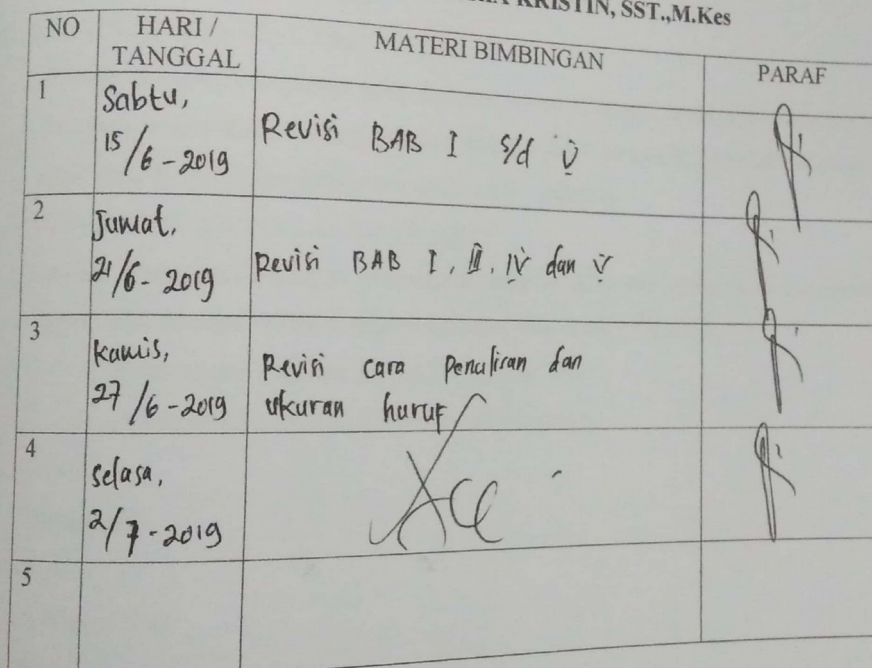 KRISTIN, SST.,M.Kes
NO
HARI /
TANGGAL
MATERI BIMBINGAN
PARAF
1
Sabtu,
15/6-2019
Revisi BAB I s/d V
2
Jumat,
21/6-2019
Revisi BAB I, III, IV dan V
3
Kamis,
27/6-2019
Revisi cara penulisan dan
ukuran huruf
4
Selasa,
2/7-2019
Acc
5